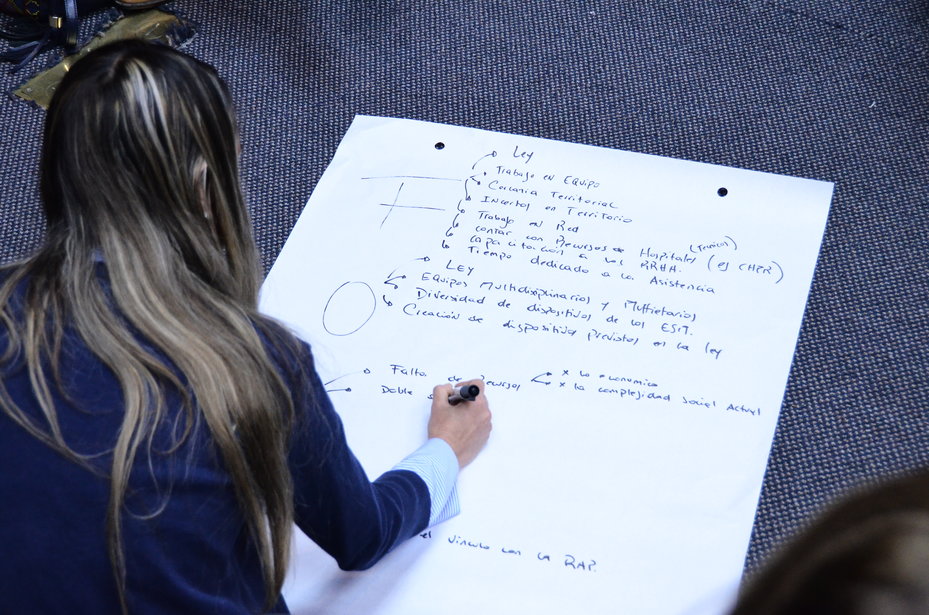 Ley
Trabajo en Equipo
Cercania Territorial
Insertos en Territorio
Trabajo en Red
contar con Recursos de Hospitales (ej CHPR)
capacitación a los RRHH.
Tiempo dedicado a la Asistencia
Ley
Equipos Multidisciplinarios y Multietarios
Diversidad de dispositivos de los ESM.
Creación de dispositivos previstos en la ley
Falta de Recursos x lo economico
x la complejidad social Actual
Doble
el vinculo con la RAP.